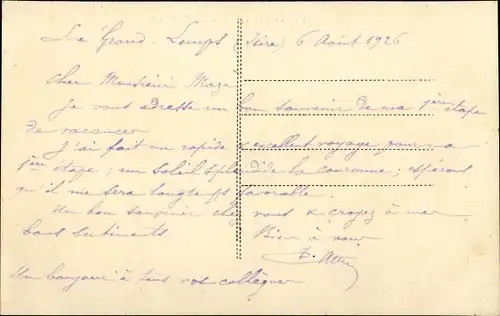 Le Grand-Lemps (Isère) 6 Août 1926
Cher Monsieur
Je vous adresse un bon souvenir de ma 1ère étape
de vacances
J'ai fait un rapide & excellent voyage pour ma
1ère étape ; un soleil splendide la couronne ; espérons
qu'il me sera longtemps favorable.
Un bon souvenir chez vous & croyez à mes
bons sentiments
Bien à vous
Un bonjour à tous vos collègues